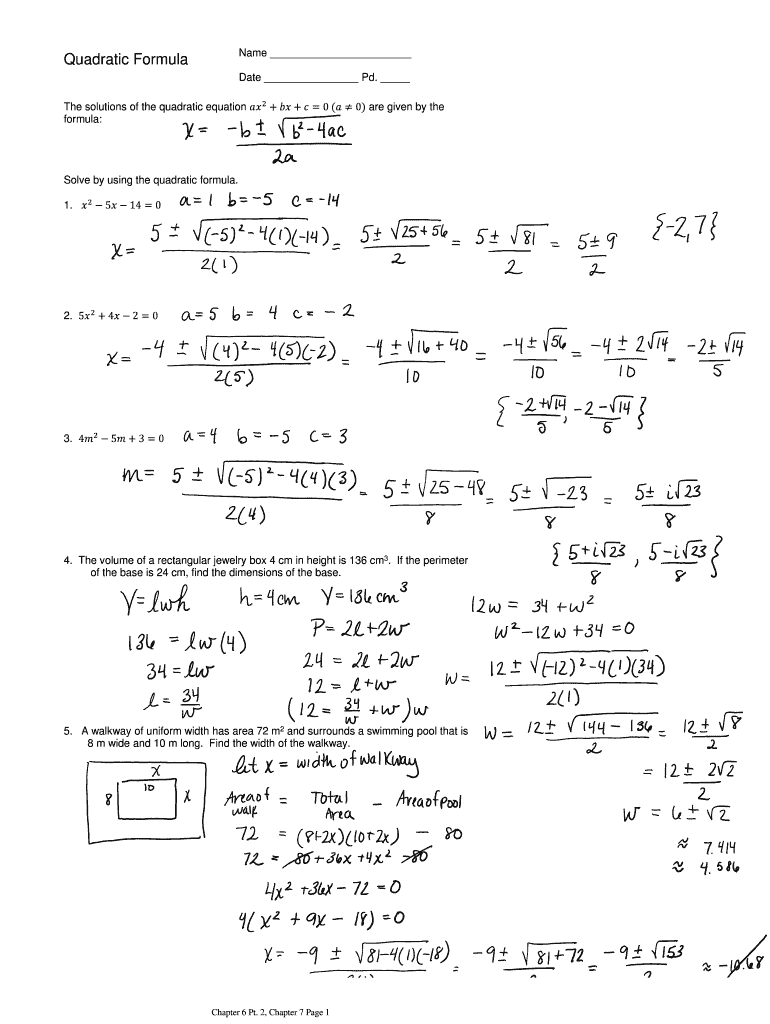 Quadratic Formula
Name
Date Pd.
The solutions of the quadratic equation ax² + bx + c = 0 (a ≠ 0) are given by the
formula:
x = (-b ± √(b² - 4ac)) / 2a
Solve by using the quadratic formula.
1. x² − 5x − 14 = 0 a = 1 b = -5 c = -14
x = (5 ± √((-5)² - 4(1)(-14))) / 2(1) = (5 ± √(25+56)) / 2 = (5 ± √81) / 2 = (5 ± 9) / 2 {-2, 7}
2. 5x² + 4x − 2 = 0 a = 5 b = 4 c = -2
x = (-4 ± √((4)² - 4(5)(-2))) / 2(5) = (-4 ± √(16+40)) / 10 = (-4 ± √56) / 10 = (-4 ± 2√14) / 10 = (-2 ± √14) / 5
{(-2+√14)/5, (-2-√14)/5}
3. 4m² − 5m + 3 = 0 a = 4 b = -5 c = 3
m = (5 ± √((-5)² - 4(4)(3))) / 2(4) = (5 ± √(25-48)) / 8 = (5 ± √-23) / 8 = (5 ± i√23) / 8
{(5+i√23)/8, (5-i√23)/8}
4. The volume of a rectangular jewelry box 4 cm in height is 136 cm³. If the perimeter
of the base is 24 cm, find the dimensions of the base.
V = lwh h = 4cm V = 136 cm³
136 = lw(4)
34 = lw
l = 34/w
P = 2l+2w
24 = 2l+2w
12 = l+w
(12 = 34/w + w)w
12w = 34 + w²
w² - 12w + 34 = 0
w = (12 ± √((-12)² - 4(1)(34))) / 2(1)
w = (12 ± √(144 - 136)) / 2 = (12 ± √8) / 2
= (12 ± 2√2) / 2
w = 6 ± √2
≈ 7.414
≈ 4.586
5. A walkway of uniform width has area 72 m² and surrounds a swimming pool that is
8 m wide and 10 m long. Find the width of the walkway.
x
10
8 x
let x = width of walkway
Area of walk = Total Area - Area of pool
72 = (8+2x)(10+2x) - 80
72 = 80 + 36x + 4x² - 80
4x² + 36x - 72 = 0
4(x² + 9x - 18) = 0
x = -9 ± √(81-4(1)(-18)) = -9 ± √(81+72) = -9 ± √153 ≈ -10.68
Chapter 6 Pt. 2, Chapter 7 Page 1